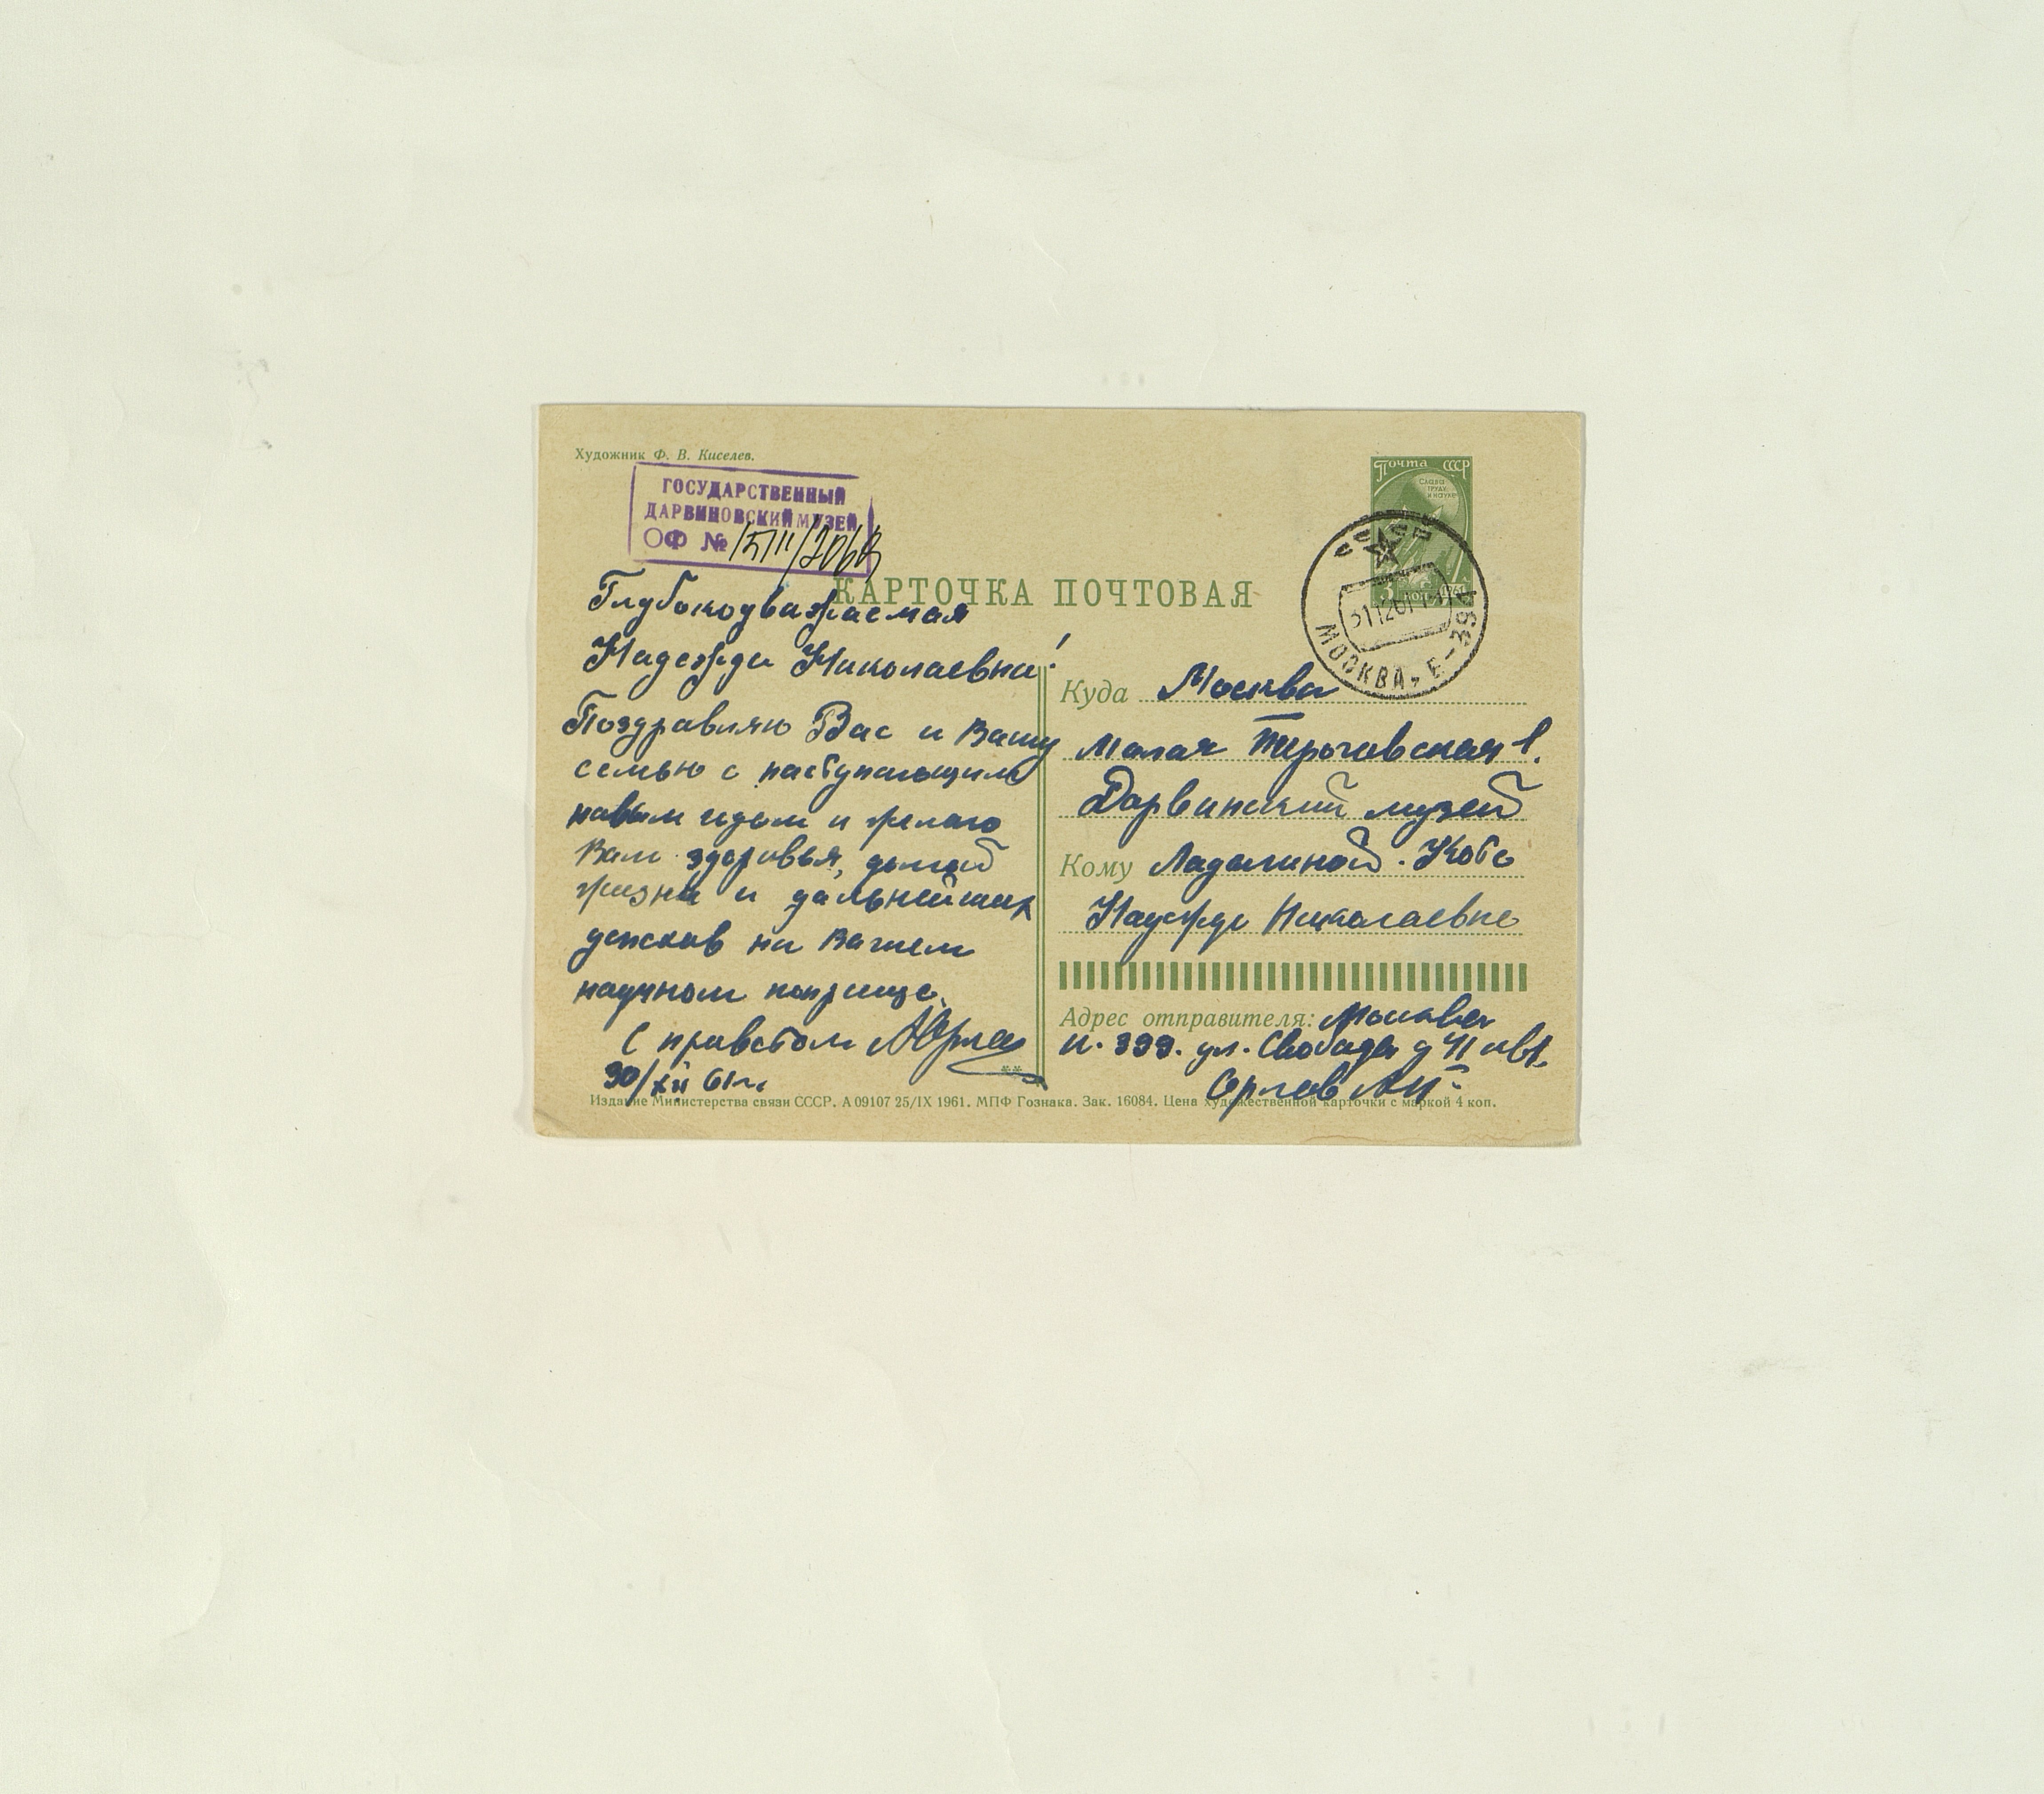 Художник Ф. В. Киселев.
ГОСУДАРСТВЕННЫЙ
ДАРВИНОВСКИЙ МУЗЕЙ
ОФ №
КАРТОЧКА ПОЧТОВАЯ
Глубокоуважаемая
Надежда Николаевна!
Поздравляю Вас и Вашу
семью с наступающим
новым годом и желаю
Вам здоровья, долгой
жизни и дальнейших
успехов на Вашем
научном поприще.
С приветом
30/XII 61 г.
Почта СССР
Слава
труду
и науке
3 коп.
СССР
МОСКВА, Е-394
Куда Москва
Малая Пироговская 1.
Дарвинский музей
Кому Ладыгиной-Котс
Надежде Николаевне
Адрес отправителя: Москва
ул. Свободы д 41 кв 1.
Орлов
Издание Министерства связи СССР. А 09107 25/IX 1961. МПФ Гознака. Зак. 16084. Цена художественной карточки с маркой 4 коп.